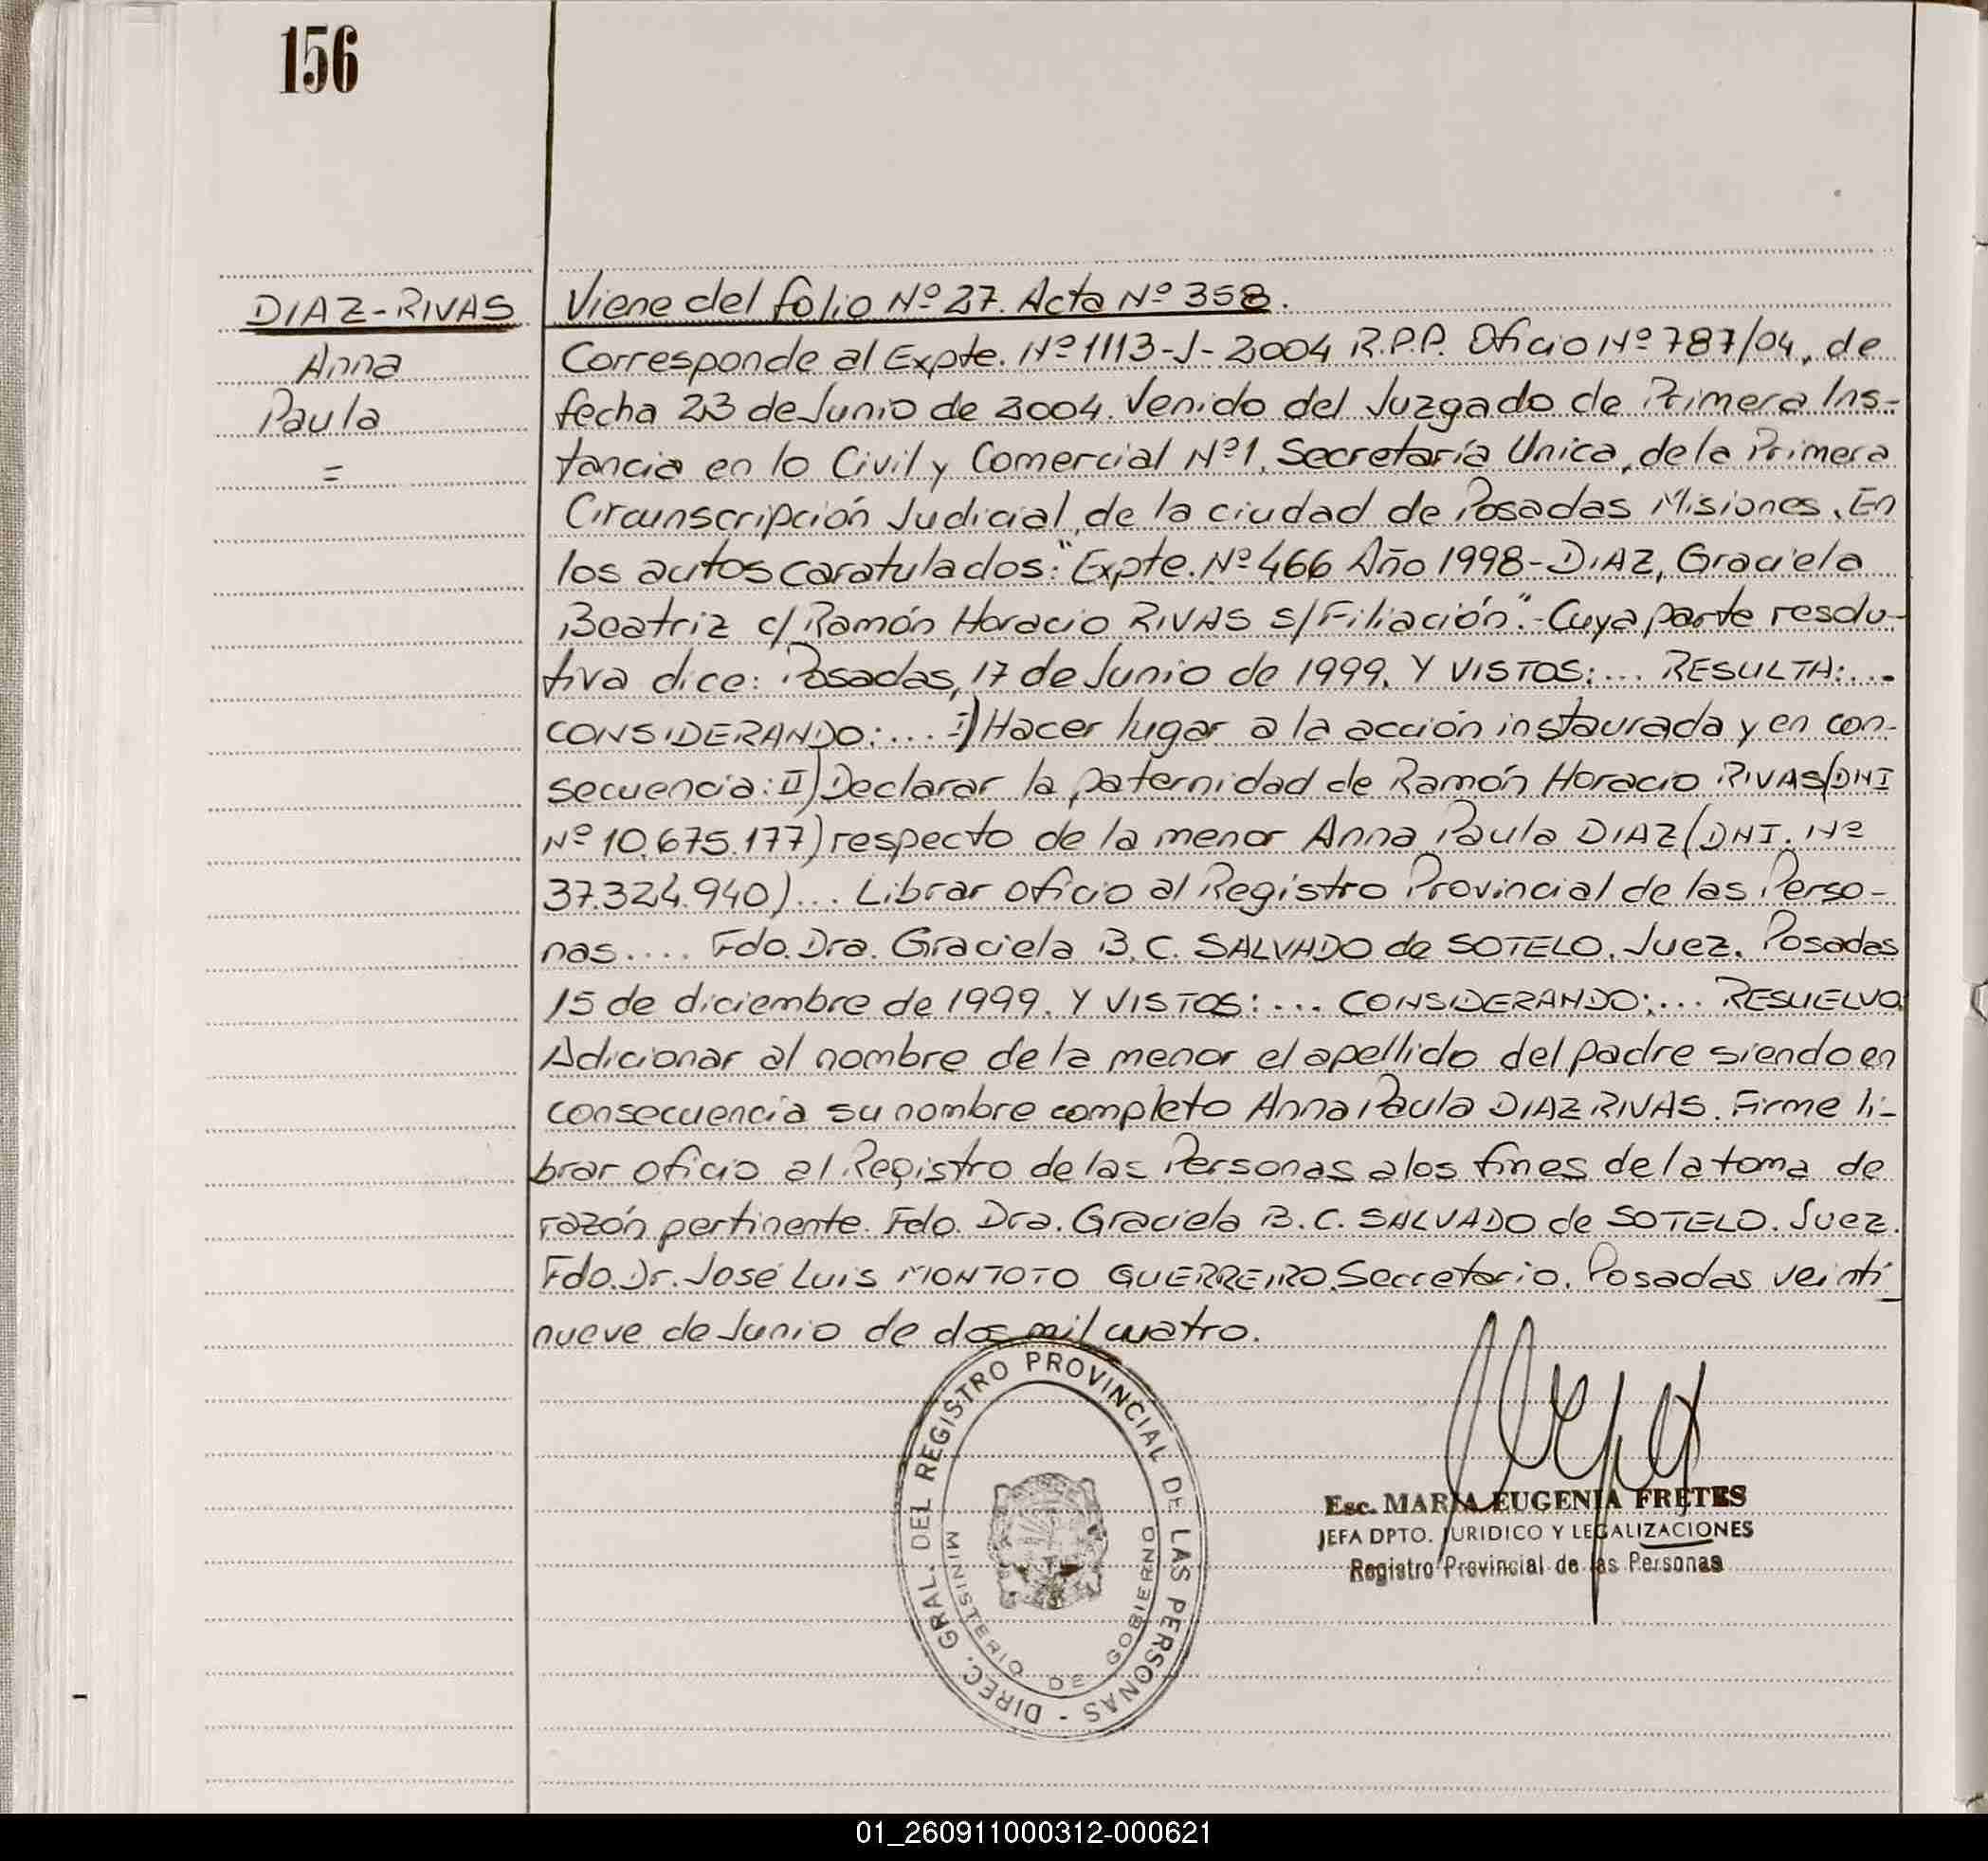 156
DIAZ-RIVAS
Anna
Paula
=
Viene del folio Nº 27. Acta Nº 358.
Corresponde al Expte. Nº 1113-J-2004 R.P.P. Oficio Nº 787/04, de
fecha 23 de Junio de 2004. Venido del Juzgado de Primera Ins-
tancia en lo Civil y Comercial Nº1, Secretaría Unica, de la Primera
Circunscripción Judicial, de la ciudad de Posadas Misiones. En
los autos caratulados: "Expte. Nº 466 Año 1998-DIAZ, Graciela
Beatriz c/ Ramón Horacio RIVAS s/Filiación".- Cuya parte resolu-
tiva dice: Posadas, 17 de Junio de 1999. Y VISTOS:... RESULTA:...
CONSIDERANDO:... I) Hacer lugar a la acción instaurada y en con-
secuencia: II) Declarar la paternidad de Ramón Horacio RIVAS (DNI
Nº 10.675.177) respecto de la menor Anna Paula DIAZ (DNI. Nº
37.324.940)... Librar oficio al Registro Provincial de las Perso-
nas.... Fdo. Dra. Graciela B. C. SALVADO de SOTELO. Juez. Posadas
15 de diciembre de 1999. Y VISTOS:... CONSIDERANDO:... RESUELVO
Adicionar al nombre de la menor el apellido del padre siendo en
consecuencia su nombre completo Anna Paula DIAZ RIVAS. Firme li-
brar oficio al Registro de las Personas a los fines de la toma de
razón pertinente. Fdo. Dra. Graciela B. C. SALVADO de SOTELO. Juez.
Fdo. Dr. José Luis MONTOTO GUERREIRO. Secretario. Posadas veinti-
nueve de Junio de dos mil cuatro.
DIREC. GRAL. DEL REGISTRO PROVINCIAL DE LAS PERSONAS -
MINISTERIO DE GOBIERNO
Esc. MARIA EUGENIA FRETES
JEFA DPTO. JURIDICO Y LEGALIZACIONES
Registro Provincial de las Personas
01_260911000312-000621